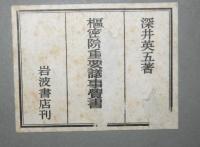 深井英五著
枢密院重要議事覚書
岩波書店刊